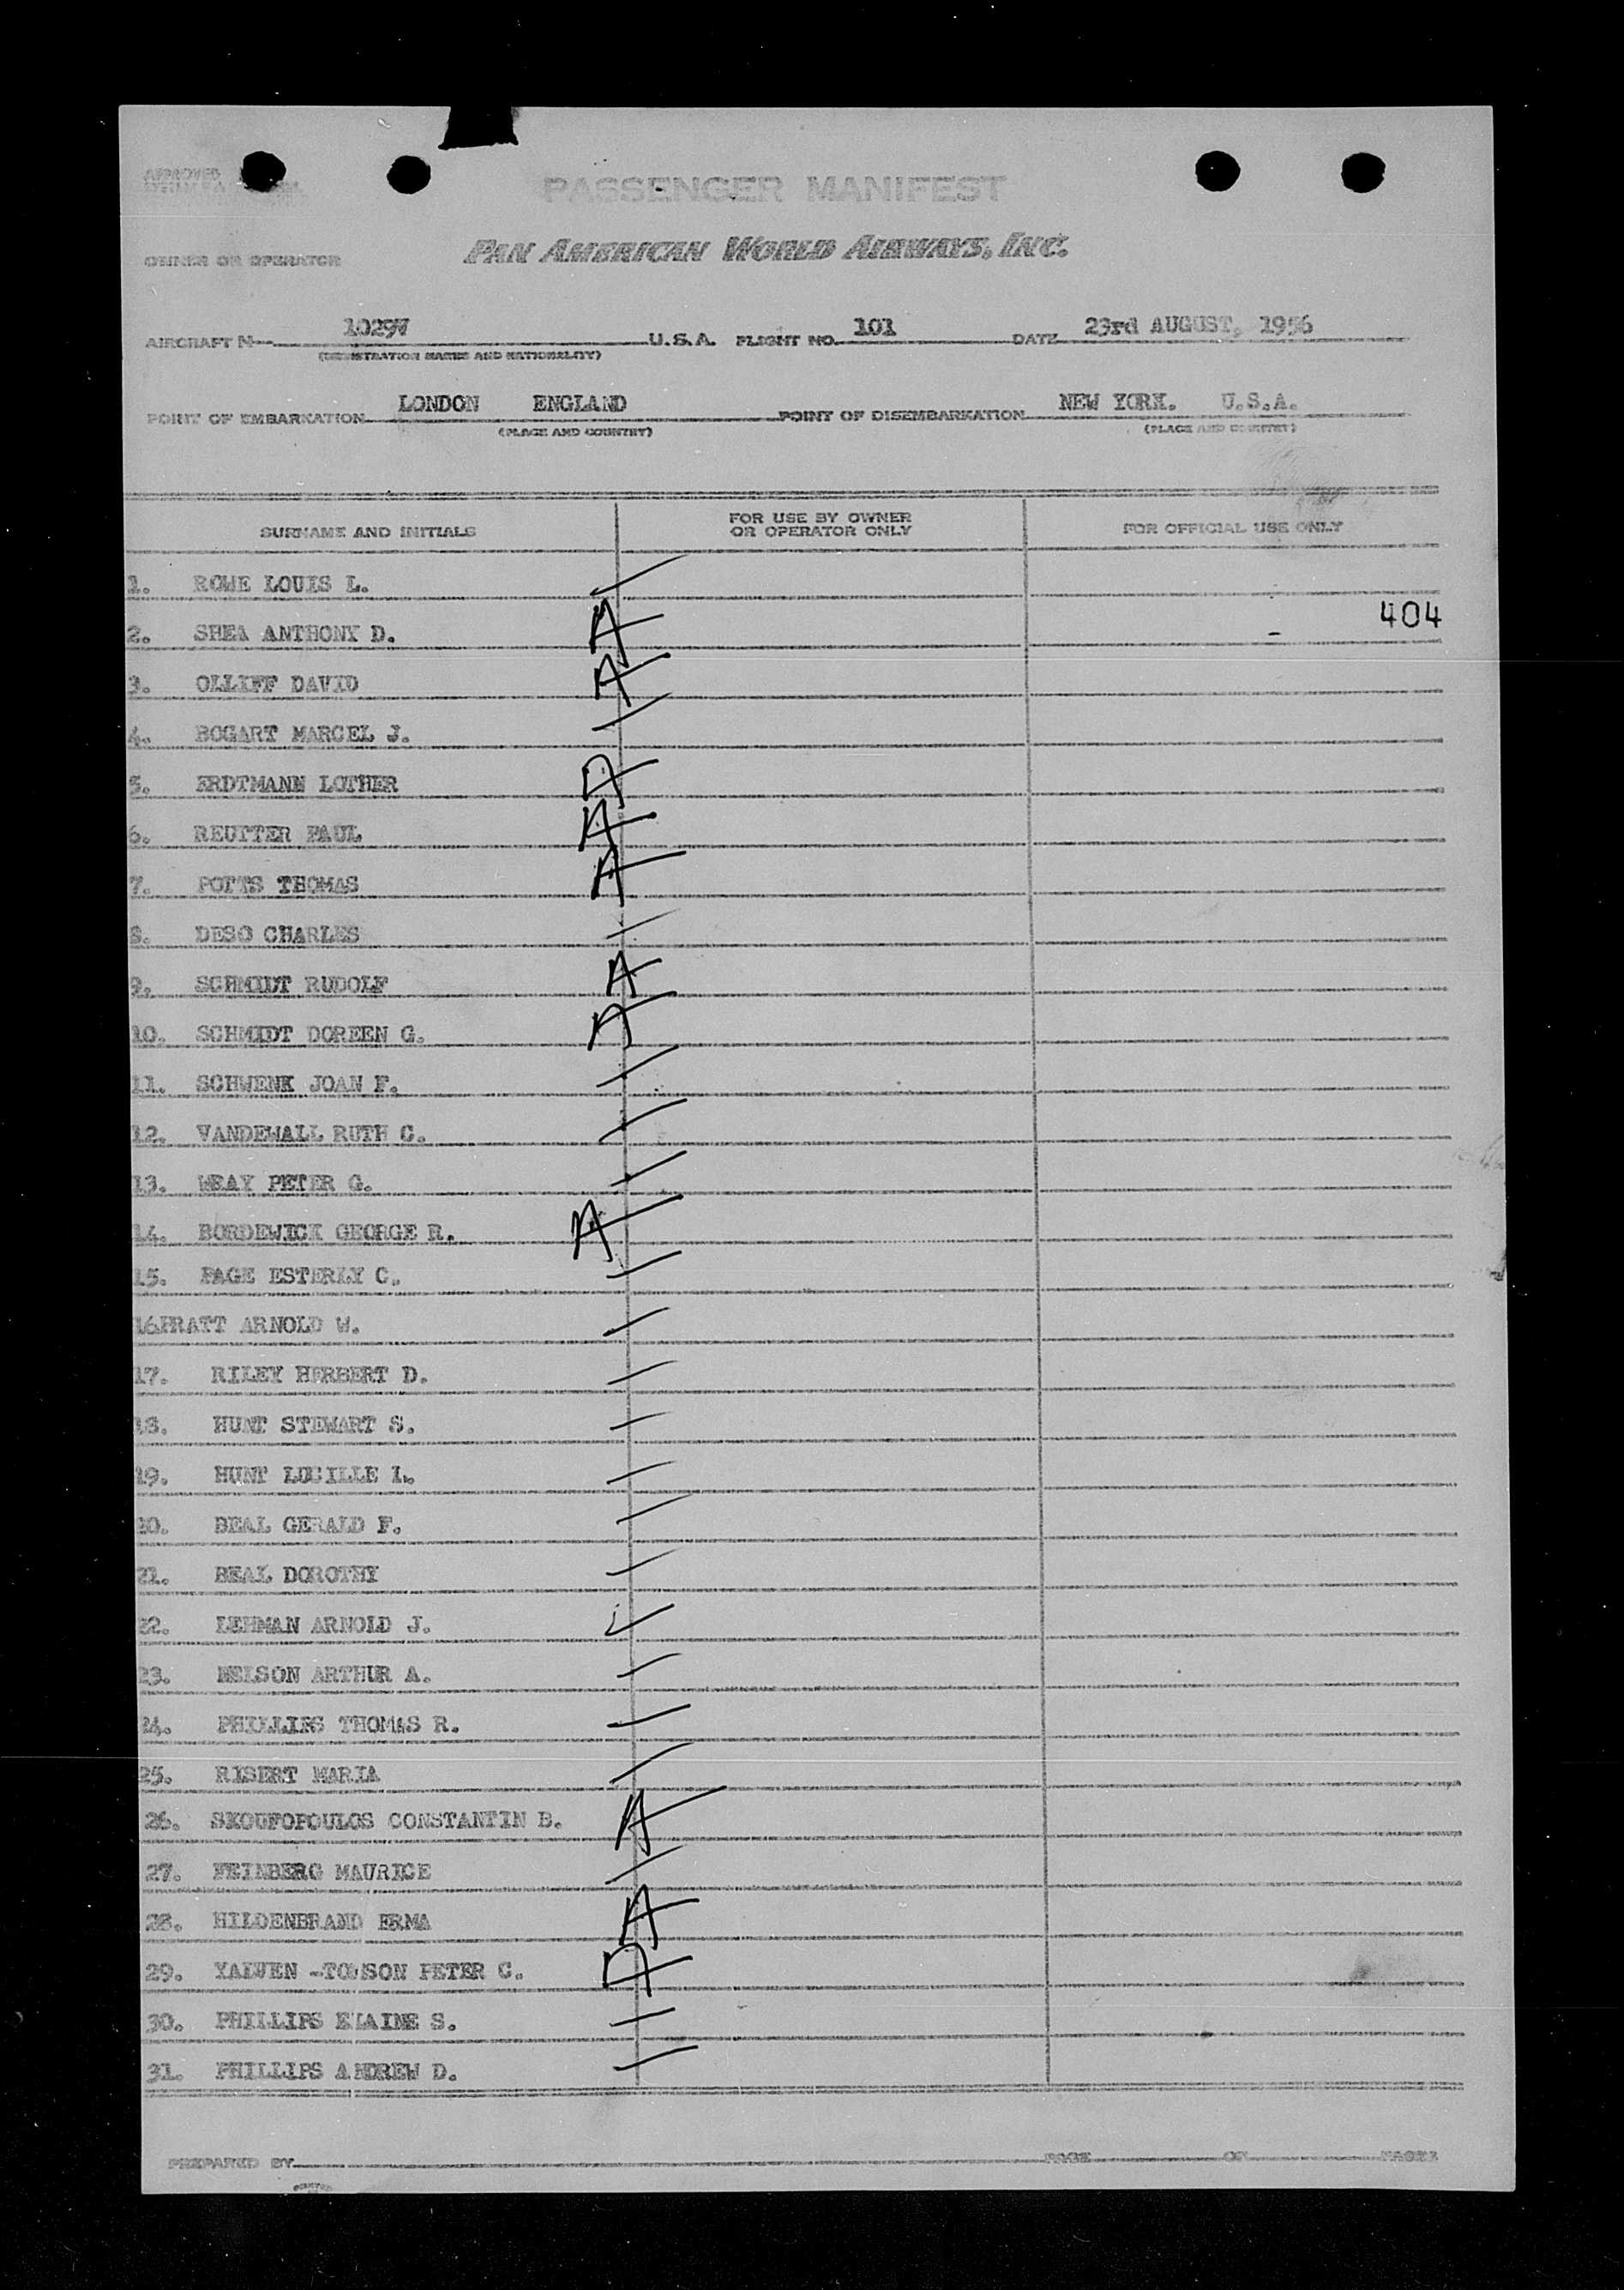 APPROVED
PASSENGER MANIFEST
OWNER OR OPERATOR
PAN AMERICAN WORLD AIRWAYS, INC.
AIRCRAFT N 1029V U.S.A. FLIGHT NO. 101 DATE 23rd AUGUST, 1956
(REGISTRATION MARKS AND NATIONALITY)
POINT OF EMBARKATION LONDON ENGLAND POINT OF DISEMBARKATION NEW YORK. U.S.A.
(PLACE AND COUNTRY) (PLACE AND COUNTRY)
SURNAME AND INITIALS FOR USE BY OWNER OR OPERATOR ONLY FOR OFFICIAL USE ONLY
1. ROWE LOUIS L.
2. SHEA ANTHONY D. A 404
3. OLLIFF DAVID A
4. BOGART MARCEL J.
5. ERDTMANN LOTHER A
6. REUTTER PAUL A
7. POTTS THOMAS A
8. DESO CHARLES
9. SCHMIDT RUDOLF A
10. SCHMIDT DOREEN G. A
11. SCHWENK JOAN F.
12. VANDEWALL RUTH C.
13. WRAY PETER G.
14. BORDEWICK GEORGE R. A
15. PAGE ESTERLY C.
16.PRATT ARNOLD W.
17. RILEY HERBERT D.
18. HUNT STEWART S.
19. HUNT LUCILLE L.
20. BEAL GERALD F.
21. BEAL DOROTHY
22. LEHMAN ARNOLD J.
23. NELSON ARTHUR A.
24. PHILLIPS THOMAS R.
25. RISERT MARIA
26. SKOUFOPOULOS CONSTANTIN B. A
27. FEINBERG MAURICE
28. HILDENBRAND ERMA A
29. PETER C. A
30. PHILLIPS ELAINE S.
31. PHILLIPS ANDREW D.
PREPARED BY PAGE OF PAGES
PRINTED